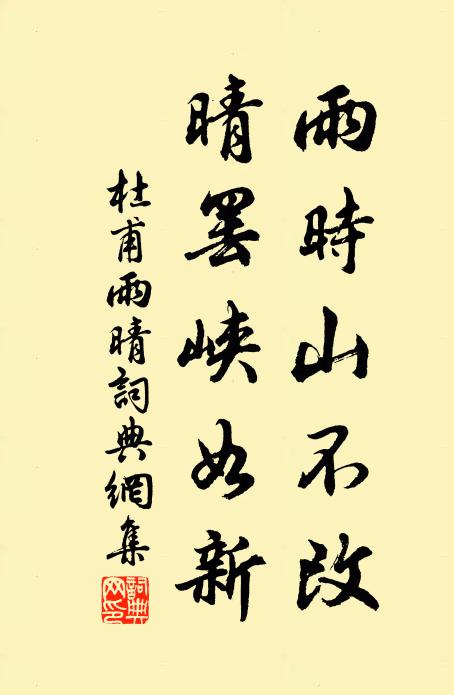 雨時山不改
晴罷峽如新
杜甫雨晴詞典網集